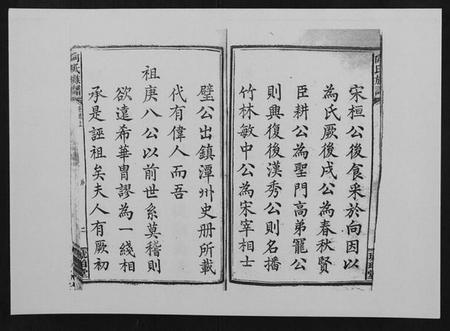 宋桓公後食采於向因以
為氏厥後戌公為春秋賢
臣耕公為聖門高弟寵公
則興復後漢秀公則名播
竹林敏中公為宋宰相士
璧公出鎮潭州史册所載
代有偉人而吾
祖庚八公以前世系莫稽則
欲遠希華胄謬為一綫相
承是誣祖矣夫人有厥初
向氏族譜